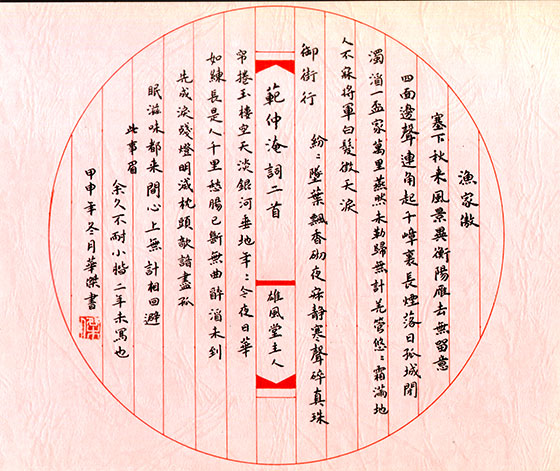 漁家傲
塞下秋来風景異衡陽雁去無留意
四面邊聲連角起千嶂裏長煙落日孤城閉
濁酒一盃家萬里燕然未勒歸無計羌管悠〻霜滿地
人不寐將軍白髮徵夫淚
御街行 紛〻墜葉飄香砌夜寂靜寒聲碎真珠
範仲淹詞二首 雄風堂主人
帘捲玉樓空天淡銀河垂地年〻今夜月華
如練長是人千里愁腸已斷無由醉酒未到
先成淚殘燈明滅枕頭欹諳盡孤
眠滋味都来間心上無計相回避
此事眉
余久不耐小楷二年未寫也
甲申年冬月華傑書